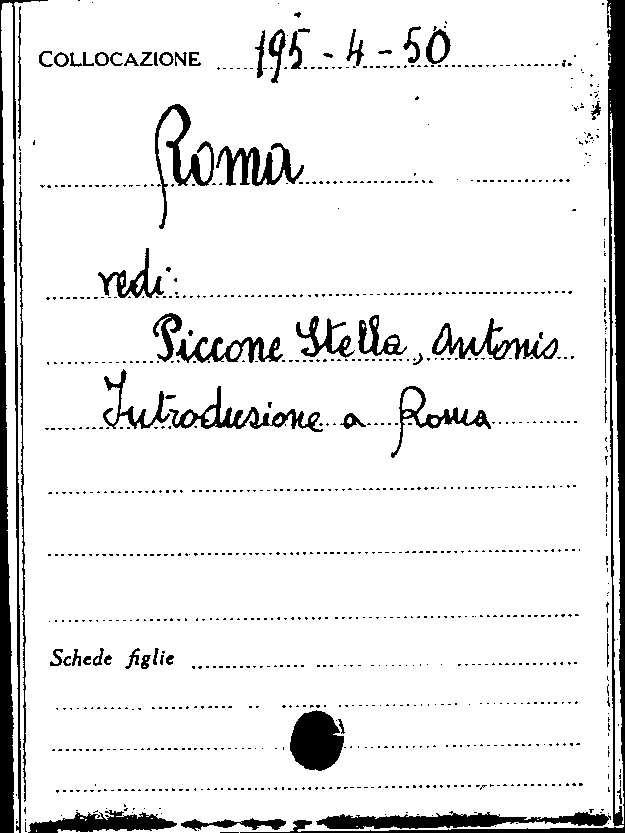 COLLOCAZIONE 195-4-50
Roma
vedi:
Piccone Stella, Antonio
Introdusione a Roma
Schede figlie